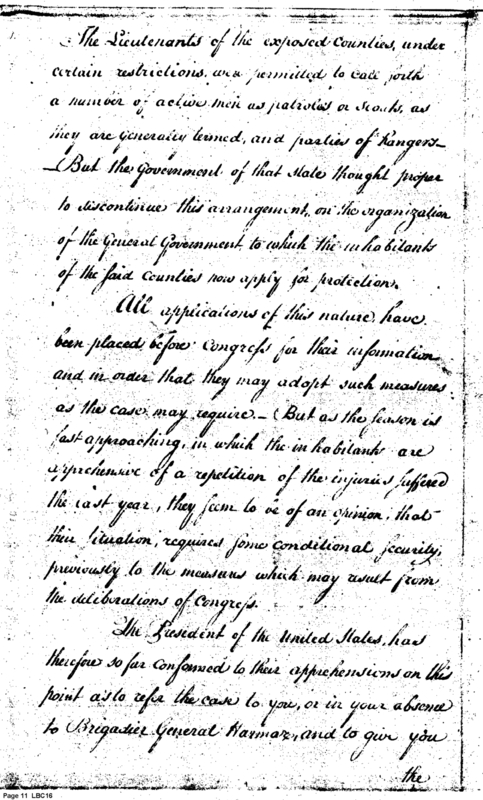 The Lieutenants of the exposed Counties, under
certain restrictions, were permitted to call forth
a number of active men as patroles or scouts, as
they are generally termed, and parties of Rangers—
But the Government of that state thought proper
to discontinue this arrangement, on the organization
of the General Government, to which the inhabitants
of the said Counties now apply for protection.
All applications of this nature, have
been placed before Congress for their information
and in order that they may adopt such measures
as the case may require.— But as the season is
fast approaching, in which the inhabitants are
apprehensive of a repetition of the injuries suffered
the last year, they seem to be of an opinion, that
their situation, requires some conditional security,
previously to the measures which may result from
the deliberations of Congress.
The President of the United States, has
therefore so far conformed to their apprehensions on this
point as to refer the case to you, or in your absence
to Brigadier General Harmar, and to give you
the
Page 11 LBC16